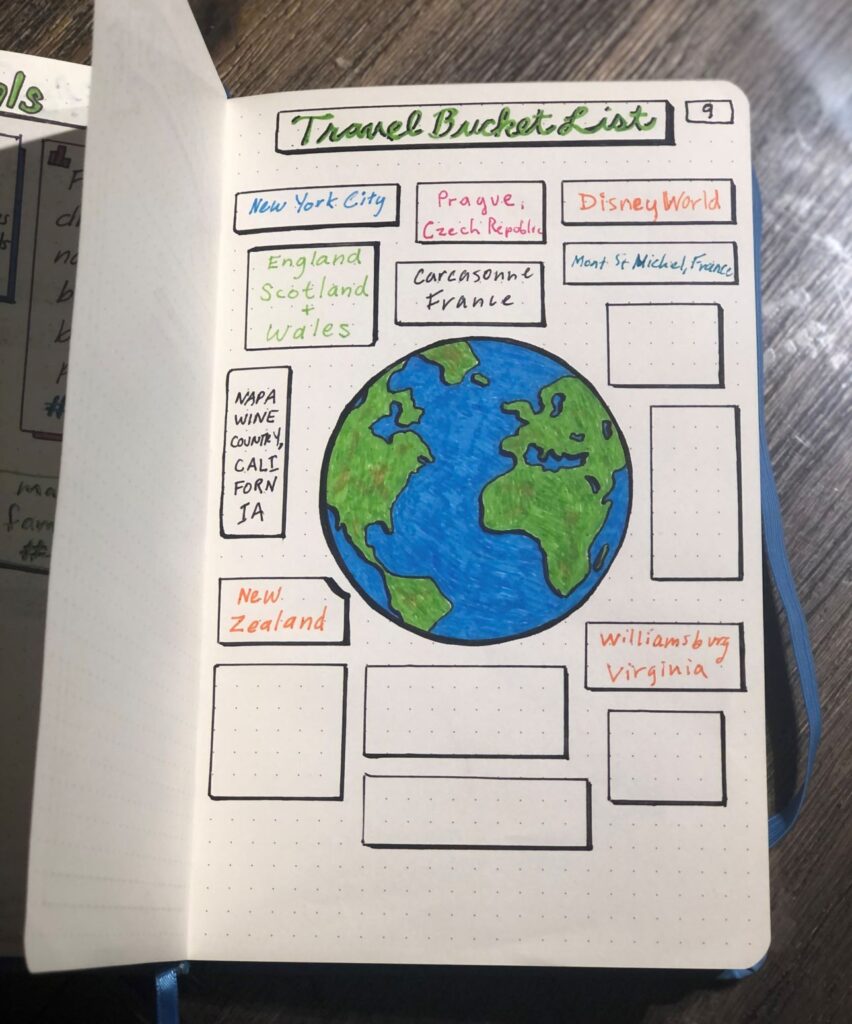 Travel Bucket List
9
New York City
Prague,
Czech Republic
Disney World
England
Scotland
+
Wales
Carcasonne
France
Mont St Michel, France
NAPA
WINE
COUNTRY,
CALI
FORN
IA
New
Zealand
Williamsburg
Virginia